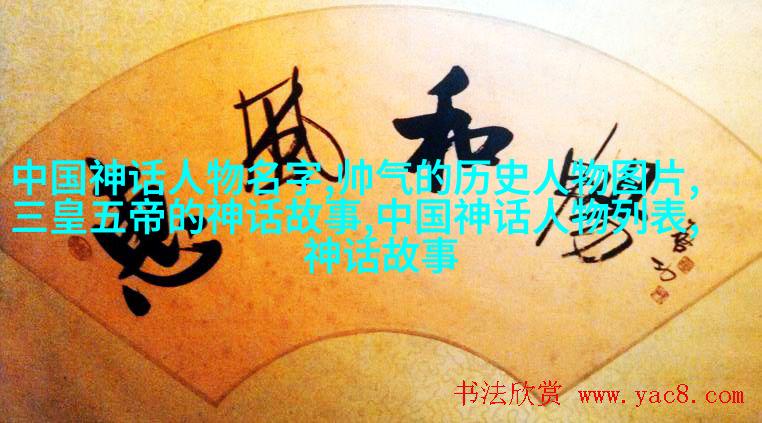 惠風和暢
启功
中国神话人物名字,帅气的历史人物图片,
三皇五帝的神话故事,中国神话人物列表,
神话故事
书法欣赏 www.yac8.com